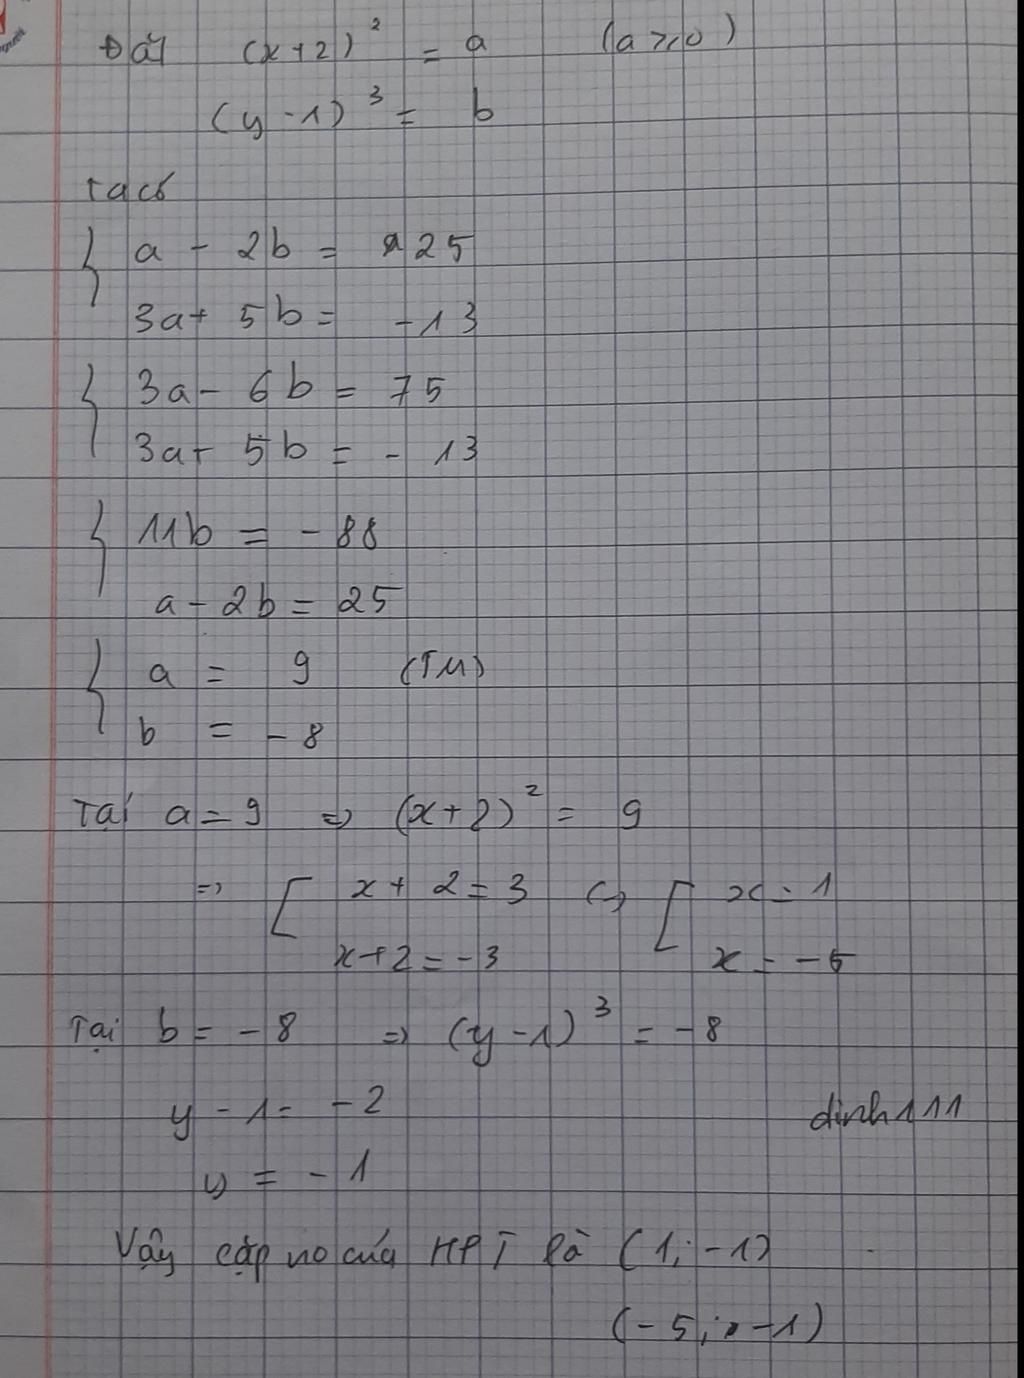 Đặt (x+2)² = a (a ≥ 0)
(y-1)³ = b
Ta có
{ a - 2b = 25
3a + 5b = -13
{ 3a - 6b = 75
3a + 5b = -13
{ 11b = -88
a - 2b = 25
{ a = 9 (TM)
b = -8
Tại a = 9 => (x+2)² = 9
=> [ x + 2 = 3 <=> [ x = 1
x + 2 = -3 x = -5
Tại b = -8 => (y-1)³ = -8
y - 1 = -2
dinh111
y = -1
Vậy cặp no của HPT là (1; -1)
(-5; -1)